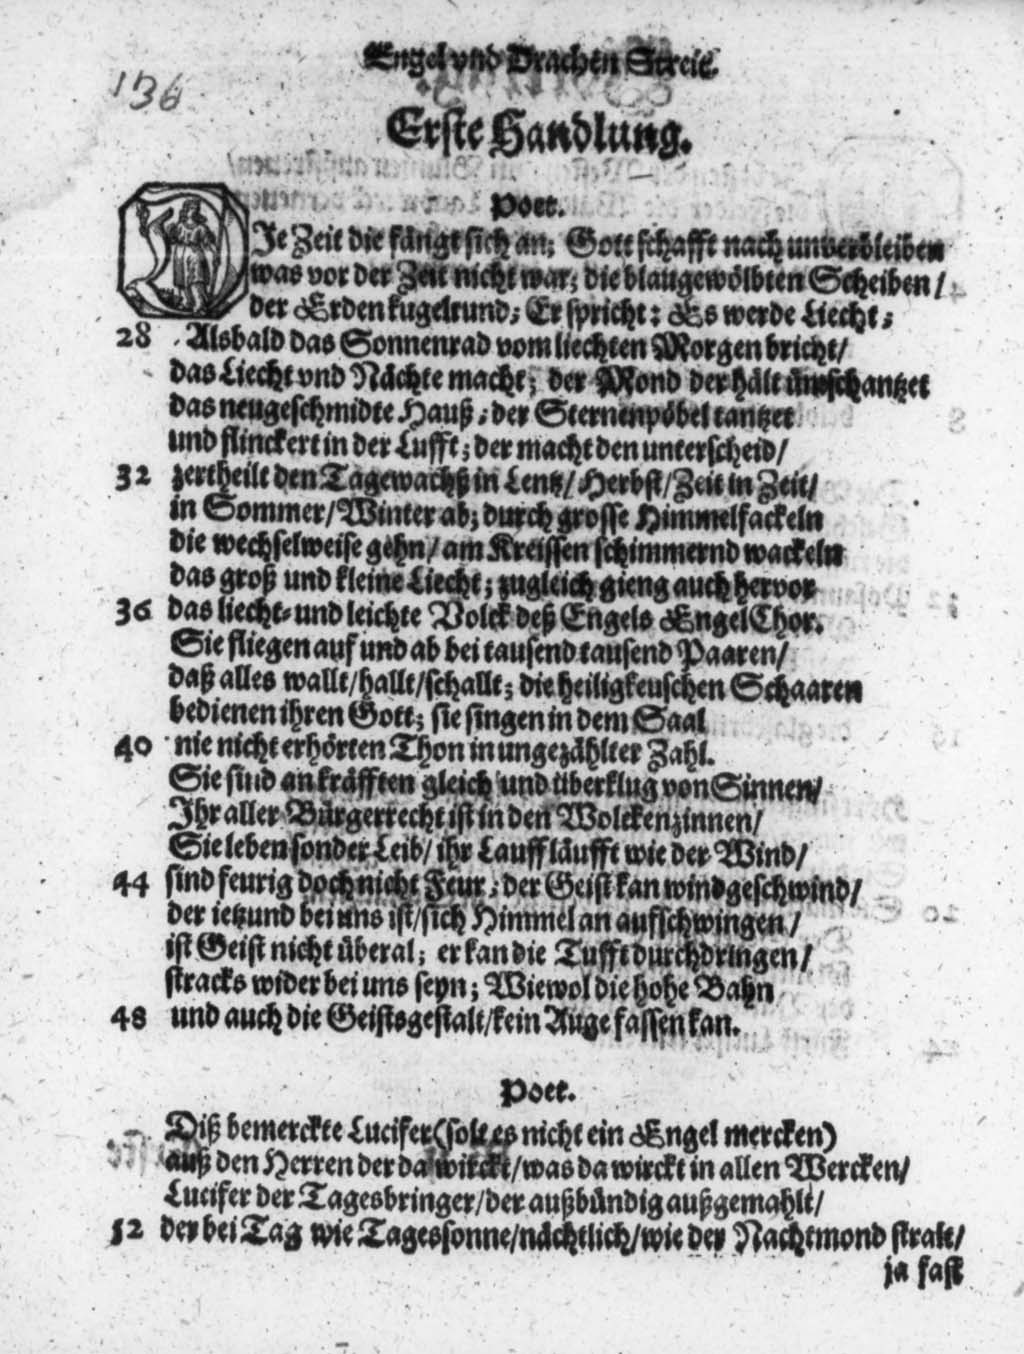 136
Engel vnd Drachen Streit.
Erste Handlung.
Poet.
DJe Zeit die fängt sich an; Gott schafft nach unverbleiben
was vor der Zeit nicht war; die blaugewölbten Scheiben /
der Erden kugelrund; Er spricht: Es werde Liecht;
28 Alsbald das Sonnenrad vom liechten Morgen bricht/
das Liecht vnd Nächte macht; der Mond der hält ümschantzet
das neugeschmidte Hauß; der Sternenpöbel tantzet
und flinckert in der Lufft; der macht den unterscheid/
32 zertheilt den Tagewachß in Lentz/ Herbst/ Zeit in Zeit/
in Sommer/ Winter ab; durch grosse Himmelfackeln
die wechselweise gehn/ am Kreissen schimmernd wackeln
das groß und kleine Liecht; zugleich gieng auch hervor
36 das liecht- und leichte Volck deß Engels EngelChor.
Sie fliegen auf und ab bei tausend tausend Paaren/
daß alles wallt/hallt/schallt; die heiligkeuschen Schaaren
bedienen ihren Gott; sie singen in dem Saal
40 nie nicht erhörten Thon in ungezählter Zahl.
Sie sind an kräfften gleich und überklug von Sinnen/
Ihr aller Bürgerrecht ist in den Wolckenzinnen/
Sie leben sonder Leib/ ihr Lauff läufft wie der Wind/
44 sind feurig doch nicht Feur; der Geist kan windgeschwind/
der ietzund bei uns ist/sich Himmel an aufschwingen /
ist Geist nicht überal; er kan die Tufft durchdringen/
stracks wider bei uns seyn; Wiewol die hohe Bahn
48 und auch die Geistsgestalt/kein Auge fassen kan.
Poet.
Diß bemerckte Lucifer(solt es nicht ein Engel mercken)
auß den Herren der da wirckt/was da wirckt in allen Wercken/
Lucifer der Tagesbringer/der außbündig außgemahlt/
52 der bei Tag wie Tagessonne/nächtlich/wie der Nachtmond stralt/
ja fast